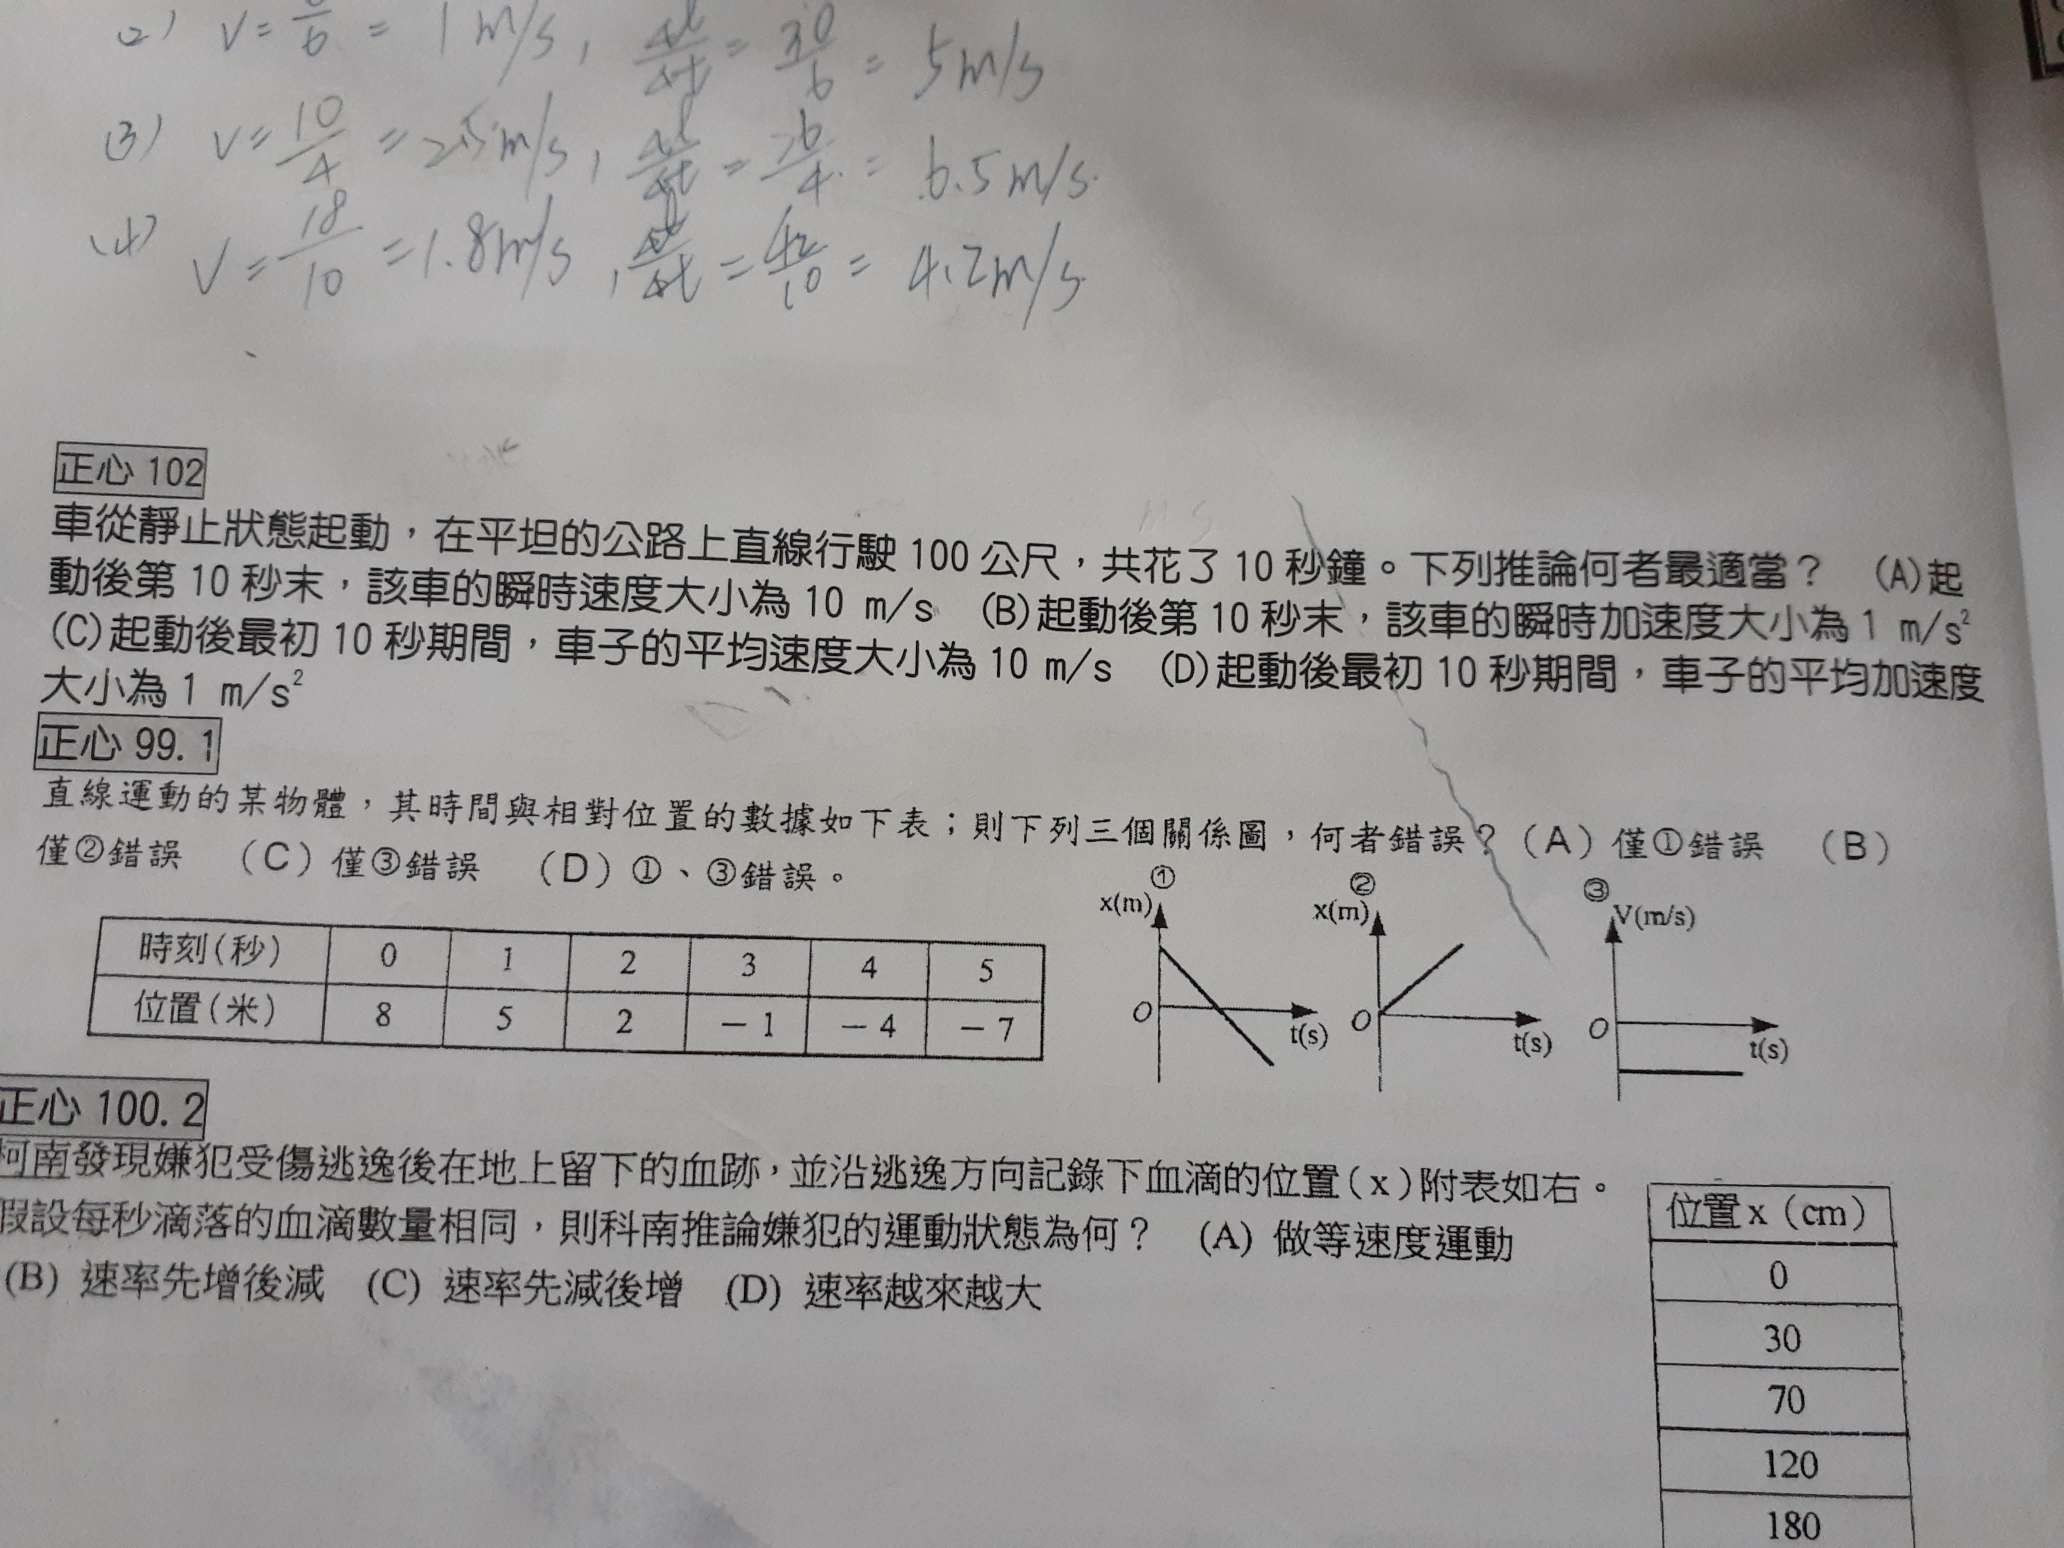 (2) V = 6/6 = 1 m/s , Δl/Δt = 30/6 = 5 m/s
(3) V = 10/4 = 2.5 m/s , Δl/Δt = 26/4 = 6.5 m/s
(4) V = 18/10 = 1.8 m/s , Δl/Δt = 42/10 = 4.2 m/s
正心 102
車從靜止狀態起動，在平坦的公路上直線行駛 100 公尺，共花了 10 秒鐘。下列推論何者最適當？ (A)起
動後第 10 秒末，該車的瞬時速度大小為 10 m/s (B)起動後第 10 秒末，該車的瞬時加速度大小為 1 m/s²
(C)起動後最初 10 秒期間，車子的平均速度大小為 10 m/s (D)起動後最初 10 秒期間，車子的平均加速度
大小為 1 m/s²
正心 99.1
直線運動的某物體，其時間與相對位置的數據如下表；則下列三個關係圖，何者錯誤？（A）僅①錯誤 （B）
僅②錯誤 （C）僅③錯誤 （D）①、③錯誤。
時刻(秒) 0 1 2 3 4 5
位置(米) 8 5 2 －1 －4 －7
① x(m) O t(s)
② x(m) O t(s)
③ V(m/s) O t(s)
正心 100.2
柯南發現嫌犯受傷逃逸後在地上留下的血跡，並沿逃逸方向記錄下血滴的位置(x)附表如右。
假設每秒滴落的血滴數量相同，則科南推論嫌犯的運動狀態為何？ (A) 做等速度運動
(B) 速率先增後減 (C) 速率先減後增 (D) 速率越來越大
位置 x（cm）
0
30
70
120
180